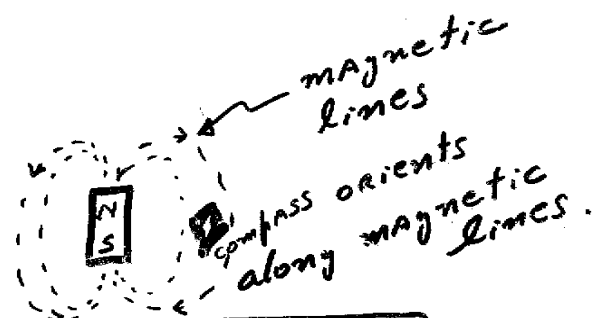 mAgnetic
lines
N
S
compass orients
along magnetic
lines.